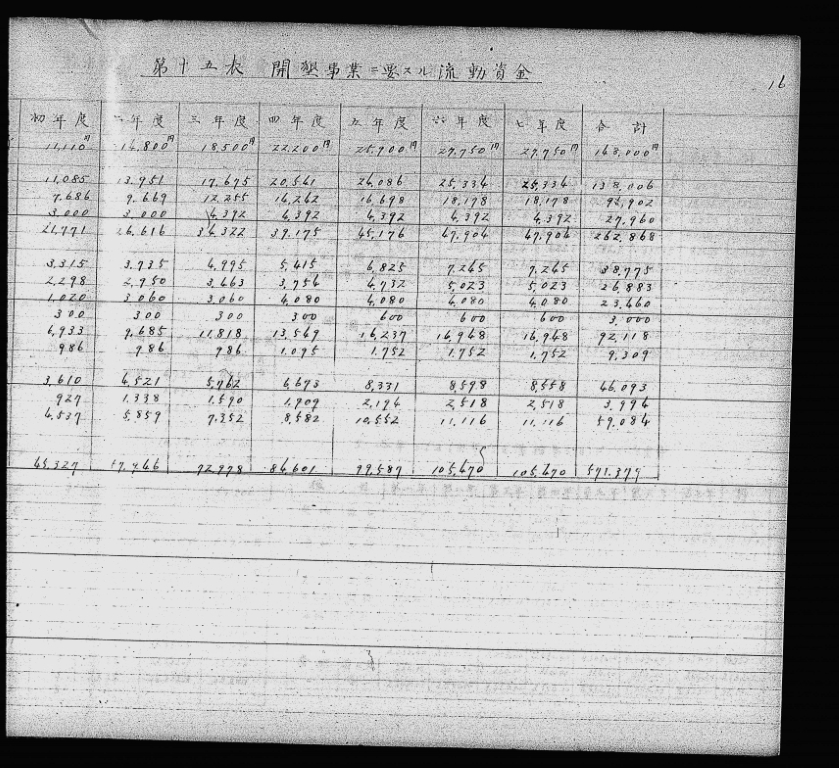 第十五表 開墾事業ニ要スル流動資金
16
初年度 二年度 三年度 四年度 五年度 六年度 七年度 合計
11,110円 14,800円 18,500円 22,200円 25,900円 27,750円 27,750円 148,000円
11,085 13,951 17,675 20,541 24,086 25,334 25,334 138,006
7,686 9,669 12,255 14,242 16,698 18,178 18,178
3,000 3,000 4,392 4,392 4,392 4,392 4,392 27,960
21,771 26,616 34,322 39,175 45,176 47,904 47,904 262,868
3,315 3,735 4,995 5,415 6,825 7,265 7,265 38,775
2,298 2,750 3,463 3,756 4,732 5,023 5,023 26,883
1,020 3,060 3,060 4,080 4,080 4,080 4,080 23,460
300 300 300 300 600 600 600 3,000
6,933 9,685 11,818 13,549 16,237 16,948 16,948 92,118
986 986 986 1,095 1,752 1,752 1,752 9,309
3,610 4,521 5,762 6,673 8,331 8,598 8,598 46,093
927 1,338 1,590 1,909 2,194 2,518 2,518
4,537 5,859 7,352 8,582 10,552 11,116 11,116 59,084
45,327 72,978 84,601 99,587 105,470 105,470 571,379